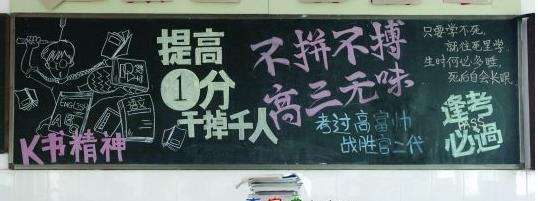 K书精神
提高
1分
干掉千人
不拼不搏
高三无味
考过高富帅
战胜官二代
只要学不死,
就往死里学.
生时何必多睡,
死后自会长眠.
逢考
必過